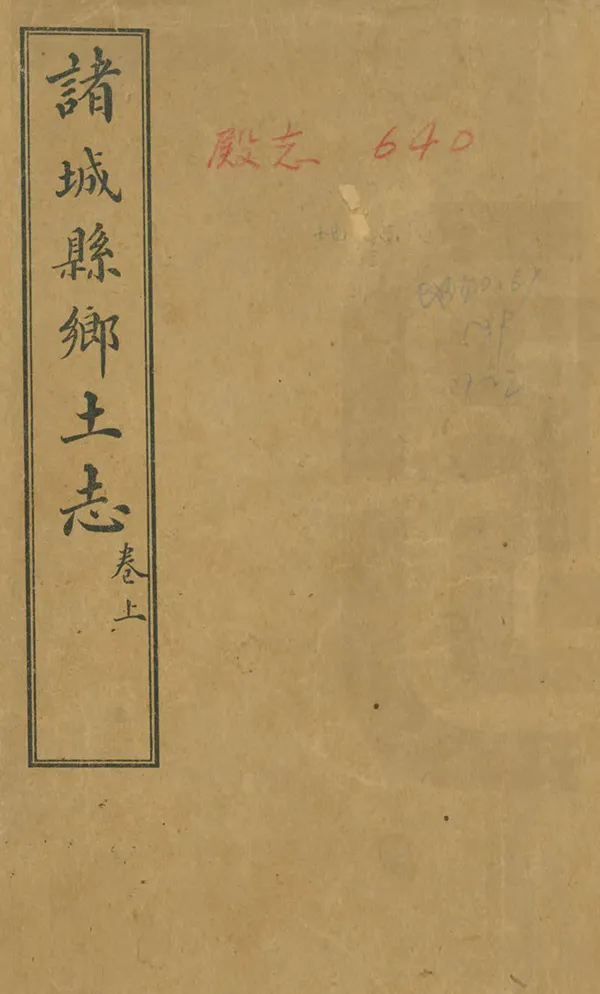 諸城縣鄉土志
卷上
殿志 640